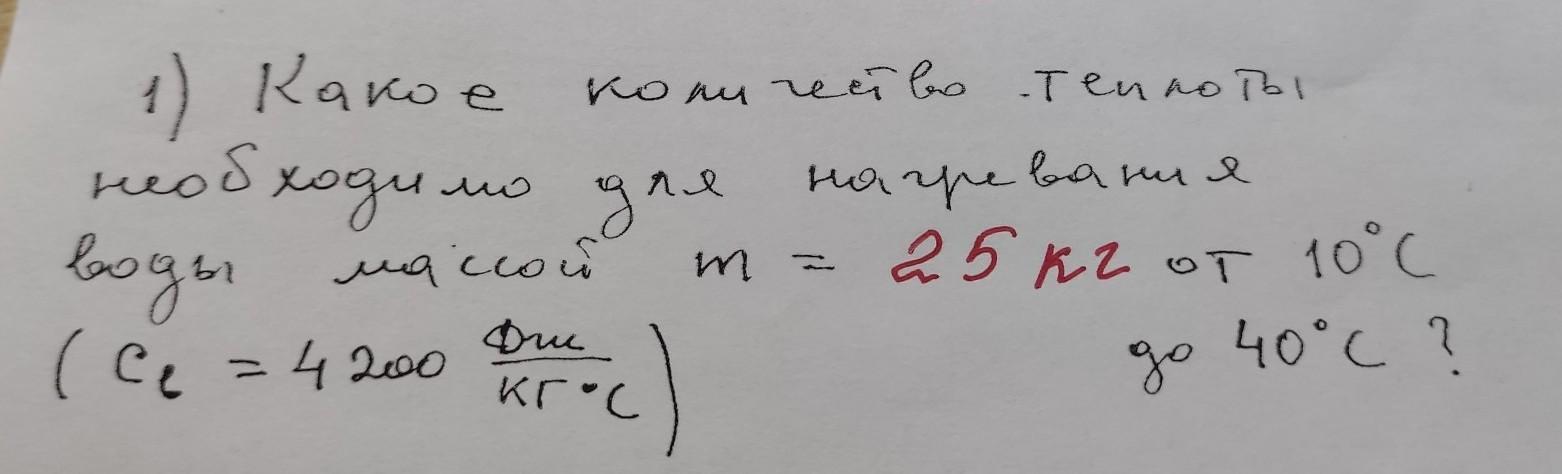 1) Какое количество теплоты
необходимо для нагревания
воды массой m = 25 кг от 10°C
до 40°C ?
(Cв = 4200 Дж/кг·°C)